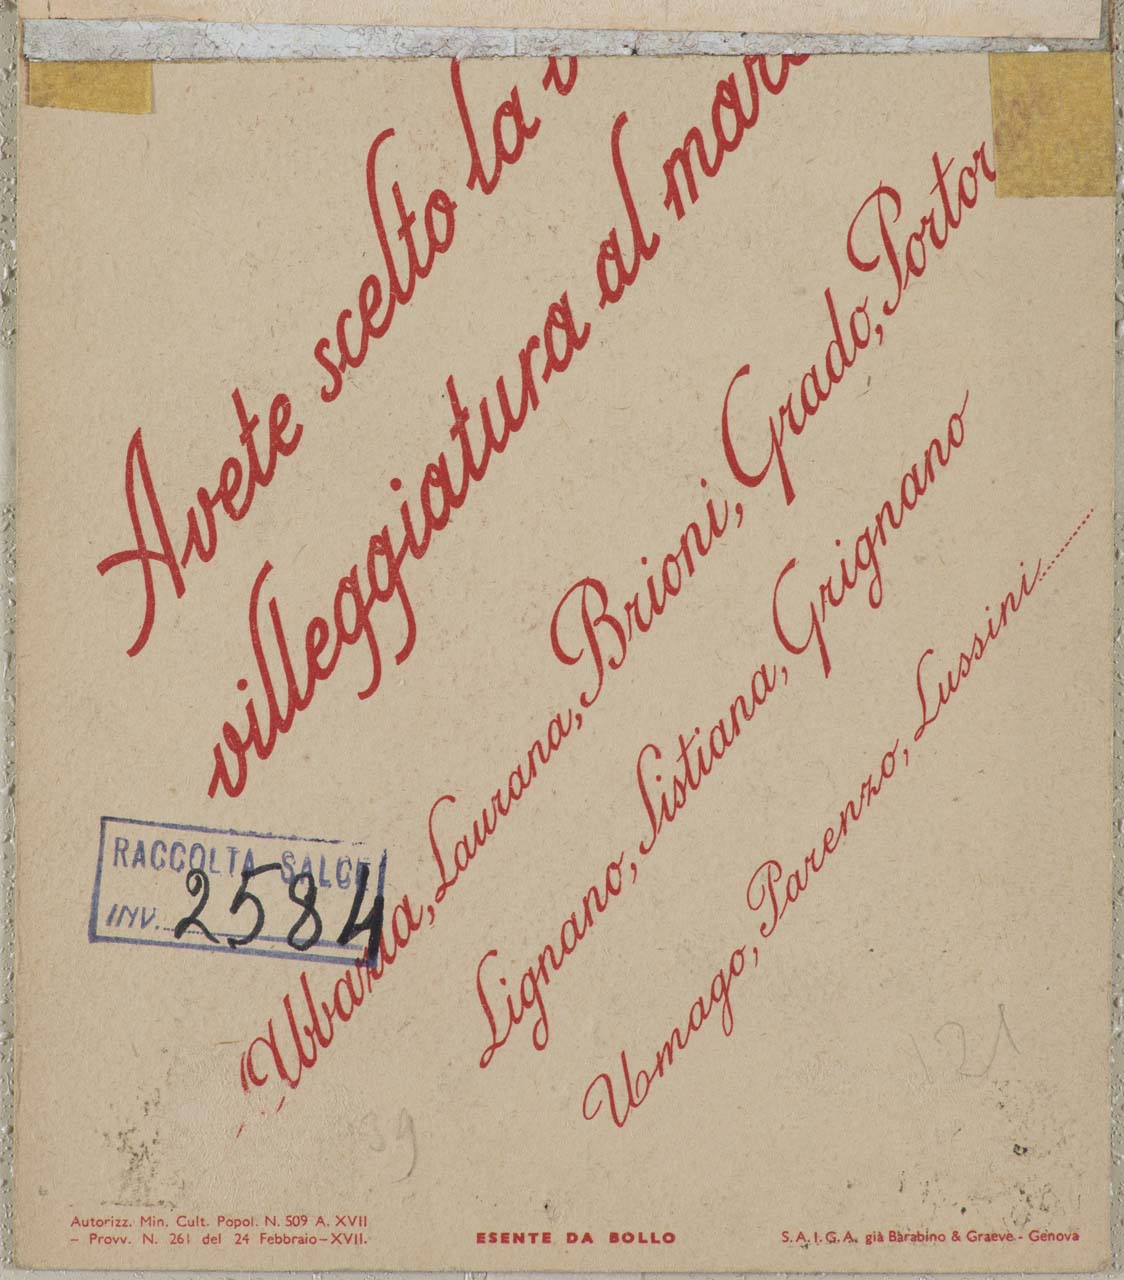 Avete scelto la v
villeggiatura al mare
Abbazia, Laurana, Brioni, Grado, Portor
Lignano, Sistiana, Grignano
Umago, Parenzo, Lussini........
RACCOLTA SALCE
INV. 2584
39
121
Autorizz. Min. Cult. Popol. N. 509 A. XVII
- Provv. N. 261 del 24 Febbraio-XVII.
ESENTE DA BOLLO
S.A.I.G.A. già Barabino & Graeve - Genova